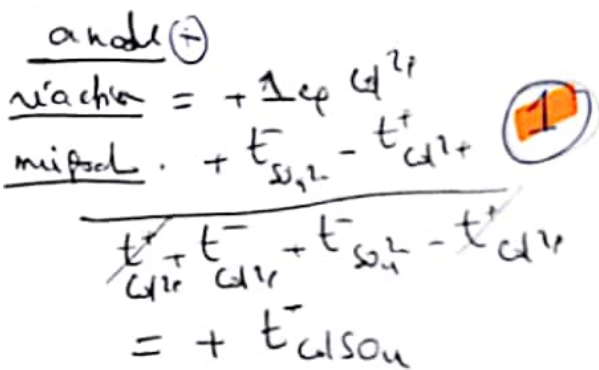 anode ⊕
réaction = + 1 eq Cd²⁺
migrat. + t⁻SO₄²⁻ - t⁺Cd²⁺ 1
t⁺Cd²⁺ + t⁻Cd²⁺ + t⁻SO₄²⁻ - t⁺Cd²⁺
= + t⁻CdSO₄